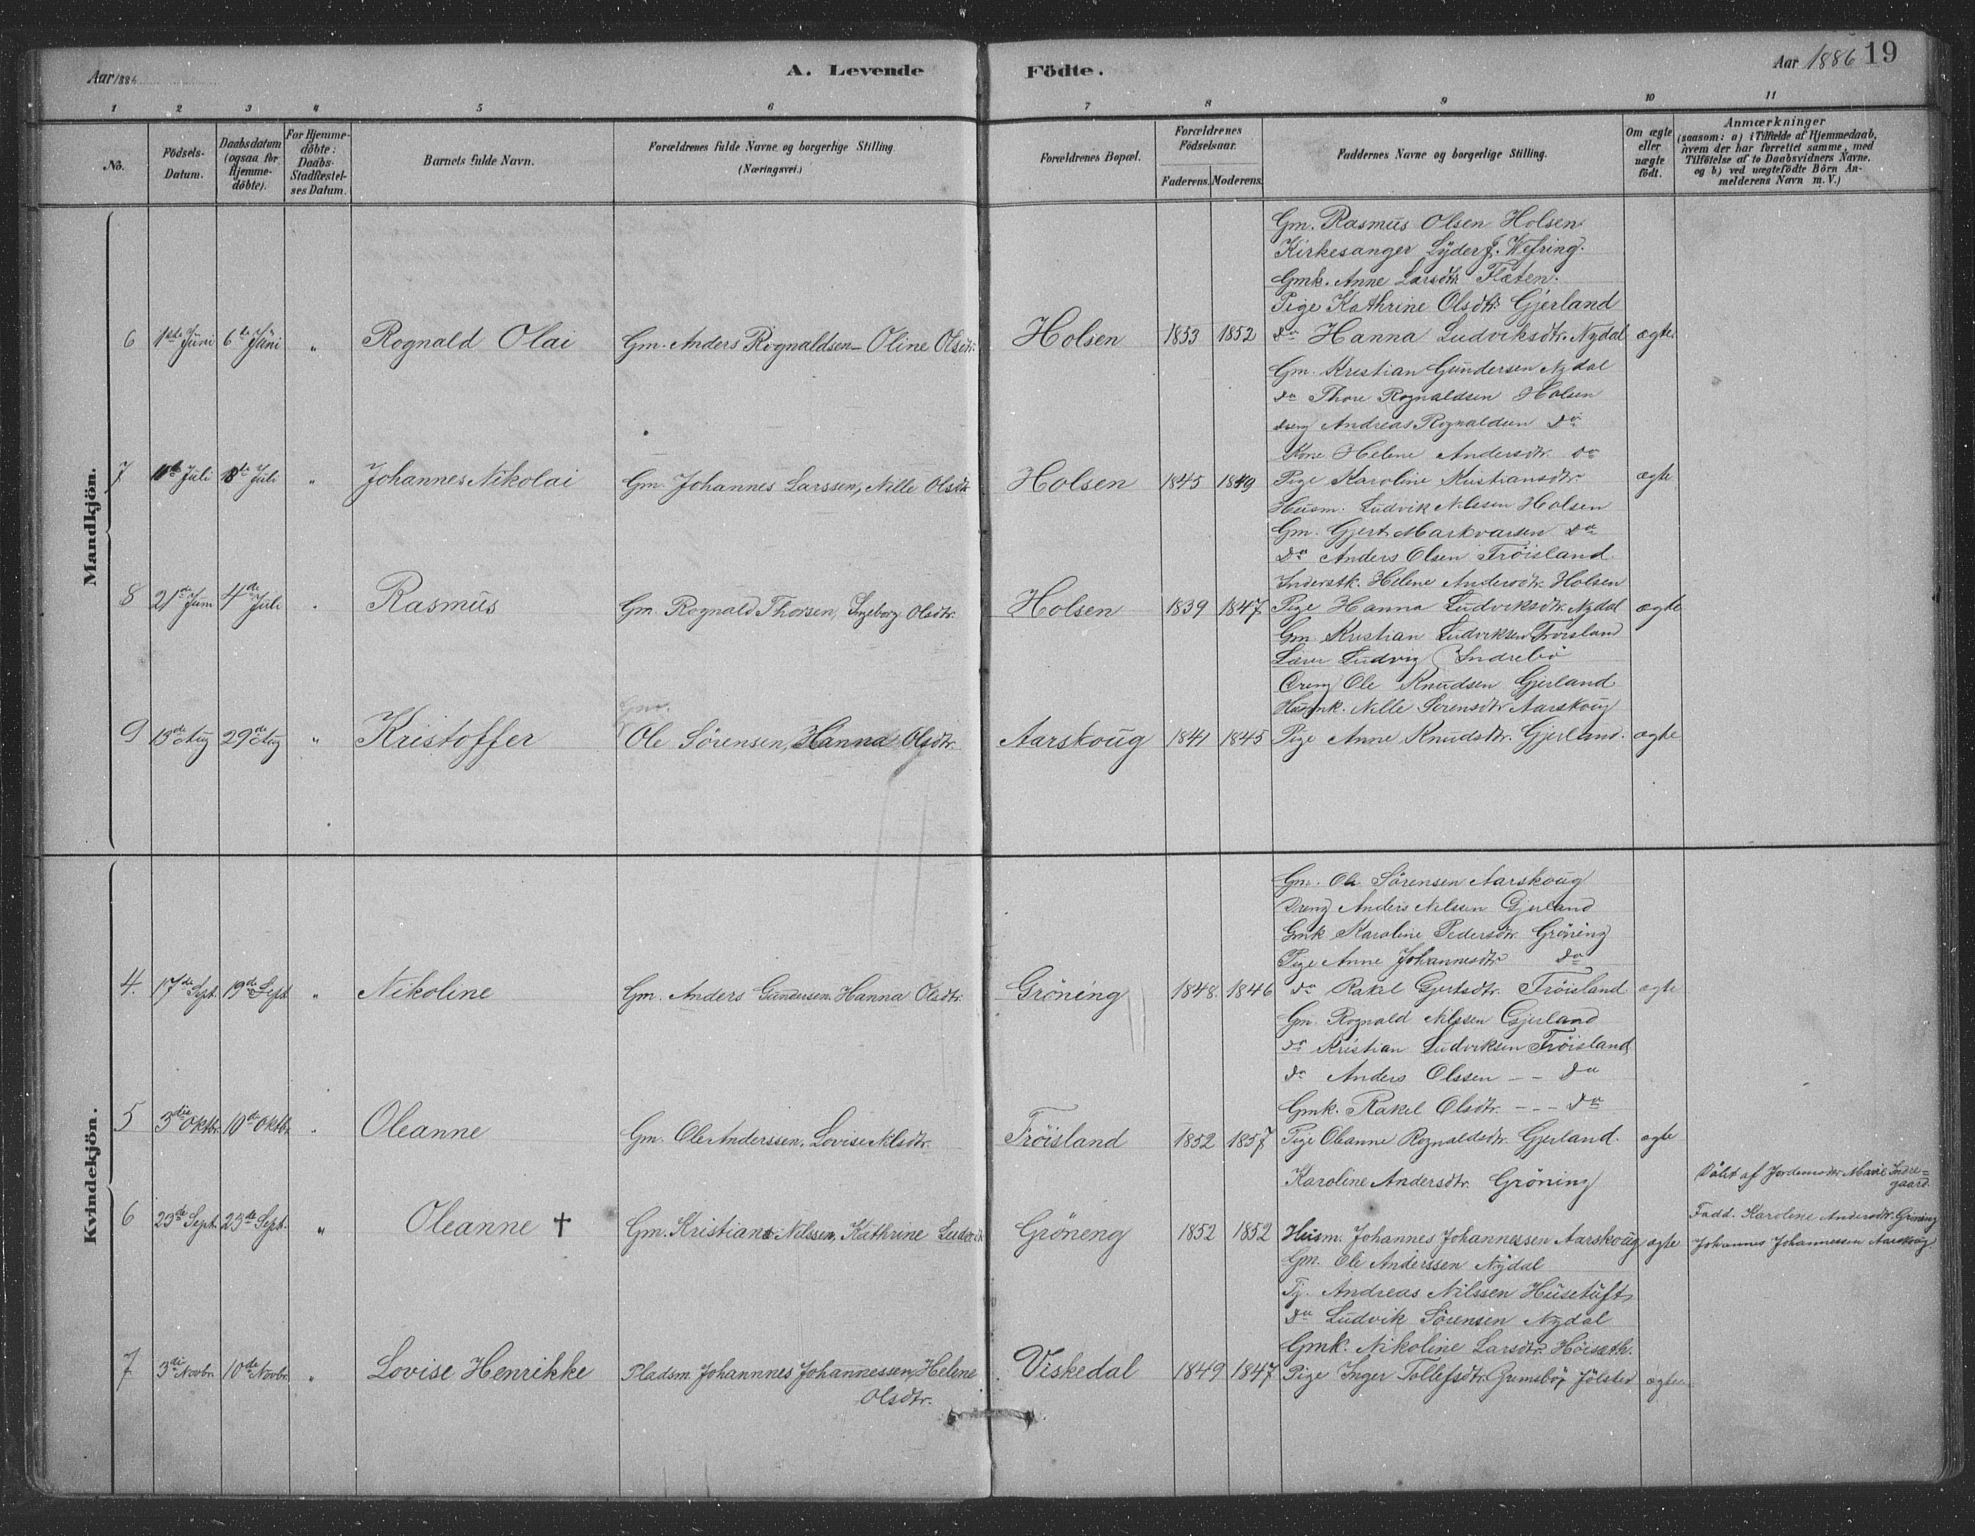 Aar 1886
A. Levende Födte.
Aar 1886 19
1 2 3 4 5 6 7 8 9 10 11
No.
Födsels-Datum.
Daabsdatum (ogsaa for Hjemmedöbte).
For Hjemmedöbte: Daabs-Stadfæstelses Datum.
Barnets fulde Navn.
Forældrenes fulde Navne og borgerlige Stilling. (Næringsvei.)
Forældrenes Bopæl.
Forældrenes Födselsaar.
Faderens. Moderens.
Faddernes Navne og borgerlige Stilling.
Om ægte eller uægte födt.
Anmærkninger
(saasom: a) i Tilfælde af Hjemmedaab,
hvem der har forrettet samme, med
Tilföielse af to Daabsvidners Navne.
og b) ved uægtefödte Börn An-
melderens Navn m. V.)
Mandkjön.
Gm. Rasmus Olsen Holsen
Kirkesanger Lyder J. Wefring.
Gmk. Anne Larsdtr. Flaten.
Pige Kathrine Olsdtr. Gjerland
6 1ste Juni 6te Juni " Rognald Olai Gm. Anders Rognaldsen - Oline Olsdtr. Holsen 1853 1852 do Hanna Ludviksdtr. Nydal ægte
Gm. Kristian Gundersen Nydal
do Thore Rognaldsen Holsen
dreng Andreas Rognaldsen do
Kone Helene Andersdtr. do
7 Juli 18de Juli " Johannes Nikolai Gm. Johannes Larssen, Nille Olsdtr Holsen 1845 1849 Pige Karoline Kristiansdtr ægte
Husm. Ludvik Nilssen Holsen
Gm. Gjert Markvarsen do
do Anders Olsen Tröisland.
Inderstk. Helene Andersdtr. Holsen
8 21de Juni 4de Juli " Rasmus Gm. Rognald Thorsen, Ingeborg Olsdtr. Holsen 1839 1847 Pige Hanna Ludviksdtr. Nydal ægte
Gm. Kristian Ludviksen Tröisland
Lærer Ludvig Indrebö
Dreng Ole Knudsen Gjerland
Husmk. Nille Sörensdtr Aarskoug
9 13de Aug 29de Aug " Kristoffer Gm. Ole Sørensen, Hanna Olsdtr. Aarskoug 1841 1845 Pige Anne Knudsdtr. Gjerland. ægte
Kvindekjön.
Gm. Ole Sörensen Aarskoug
Dreng Anders Nilsen Gjerland
Gmk Karoline Pedersdtr. Gröning
Pige Anne Johannesdtr do
4. 17de Sept. 19de Sept. " Nikoline Gm. Anders Gundersen, Hanna Olsdtr. Gröning 1848. 1846 do Rakel Gjertsdtr. Tröisland ægte
Gm. Rognald Nilssen Gjerland
do Kristian Ludviksen Tröisland
do Anders Olssen - - do
Gmk. Rakel Olsdtr. - - - do
5 3die Oktbr. 10de Oktbr " Oleanne Gm. Ole Anderssen, Lovise Nilsdtr. Tröisland 1852 1857 Pige Oleanne Rognaldsdtr. Gjerland. ægte
Karoline Andersdtr. Gröning
Döbt af Jordemoder Marie Indre-
gaard.
Fadd. Karoline Andersdtr. Gröning
6 23de Sept. 23de Sept. " Oleanne † Gm. Kristian Nilssen, Kathrine Gröneng 1852 1852 Husm. Johannes Johannessen Aarskoug ægte Johannes Johannessen Aarskoug
Gm. Ole Anderssen Nydal
Tj. Andreas Nilssen Husetuft
do Ludvik Sörensen Nydal
Gmk. Nikoline Larsdtr. Höisæth.
7 3die Novbr. 10de Novbr. " Lovise Henrikke Pladsm. Johannnes Johannessen, Helene Olsdtr. Viskedal 1849 1847 Pige Inger Tollefsdtr. Jölster ægte